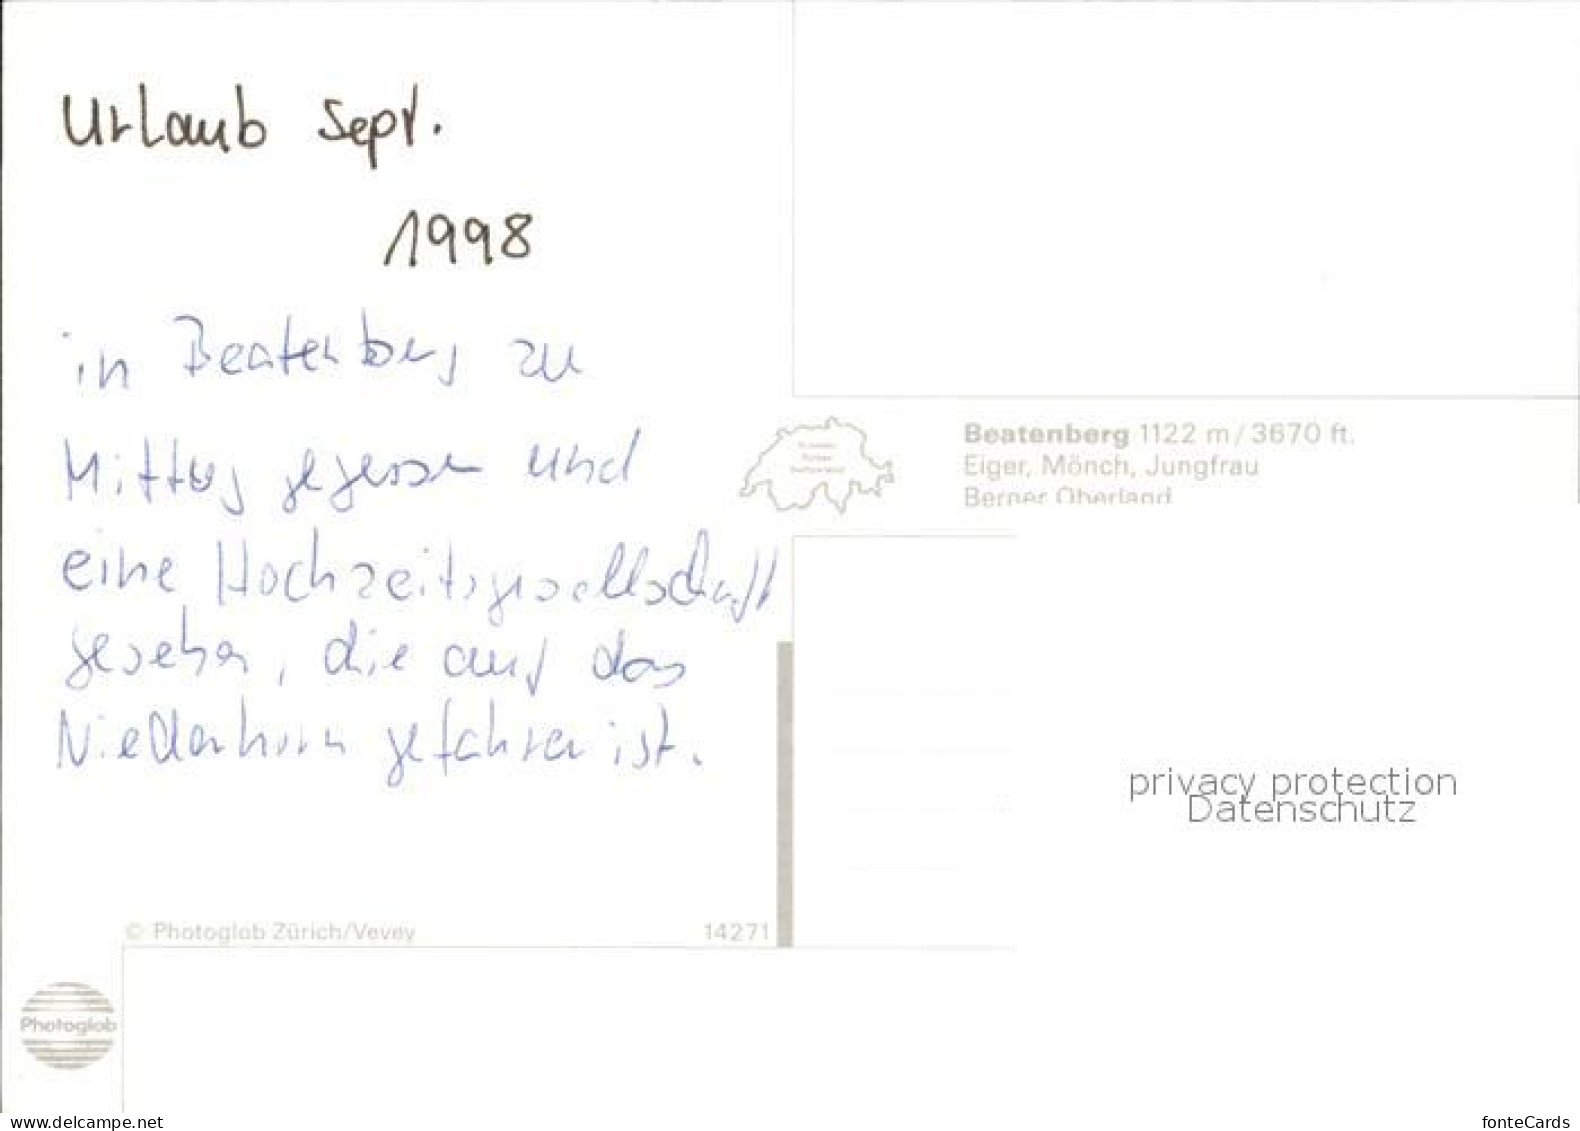 Urlaub Sept.
1998
in Beatenberg zu
Mittag gegessen und
eine Hochzeitsgesellschaft
gesehen, die auf das
Niederhorn gefahren ist.
Beatenberg 1122 m / 3670 ft.
Eiger, Mönch, Jungfrau
Berner Oberland
privacy protection
Datenschutz
© Photoglob Zürich/Vevey
14271
Photoglob
www.delcampe.net
fonteCards